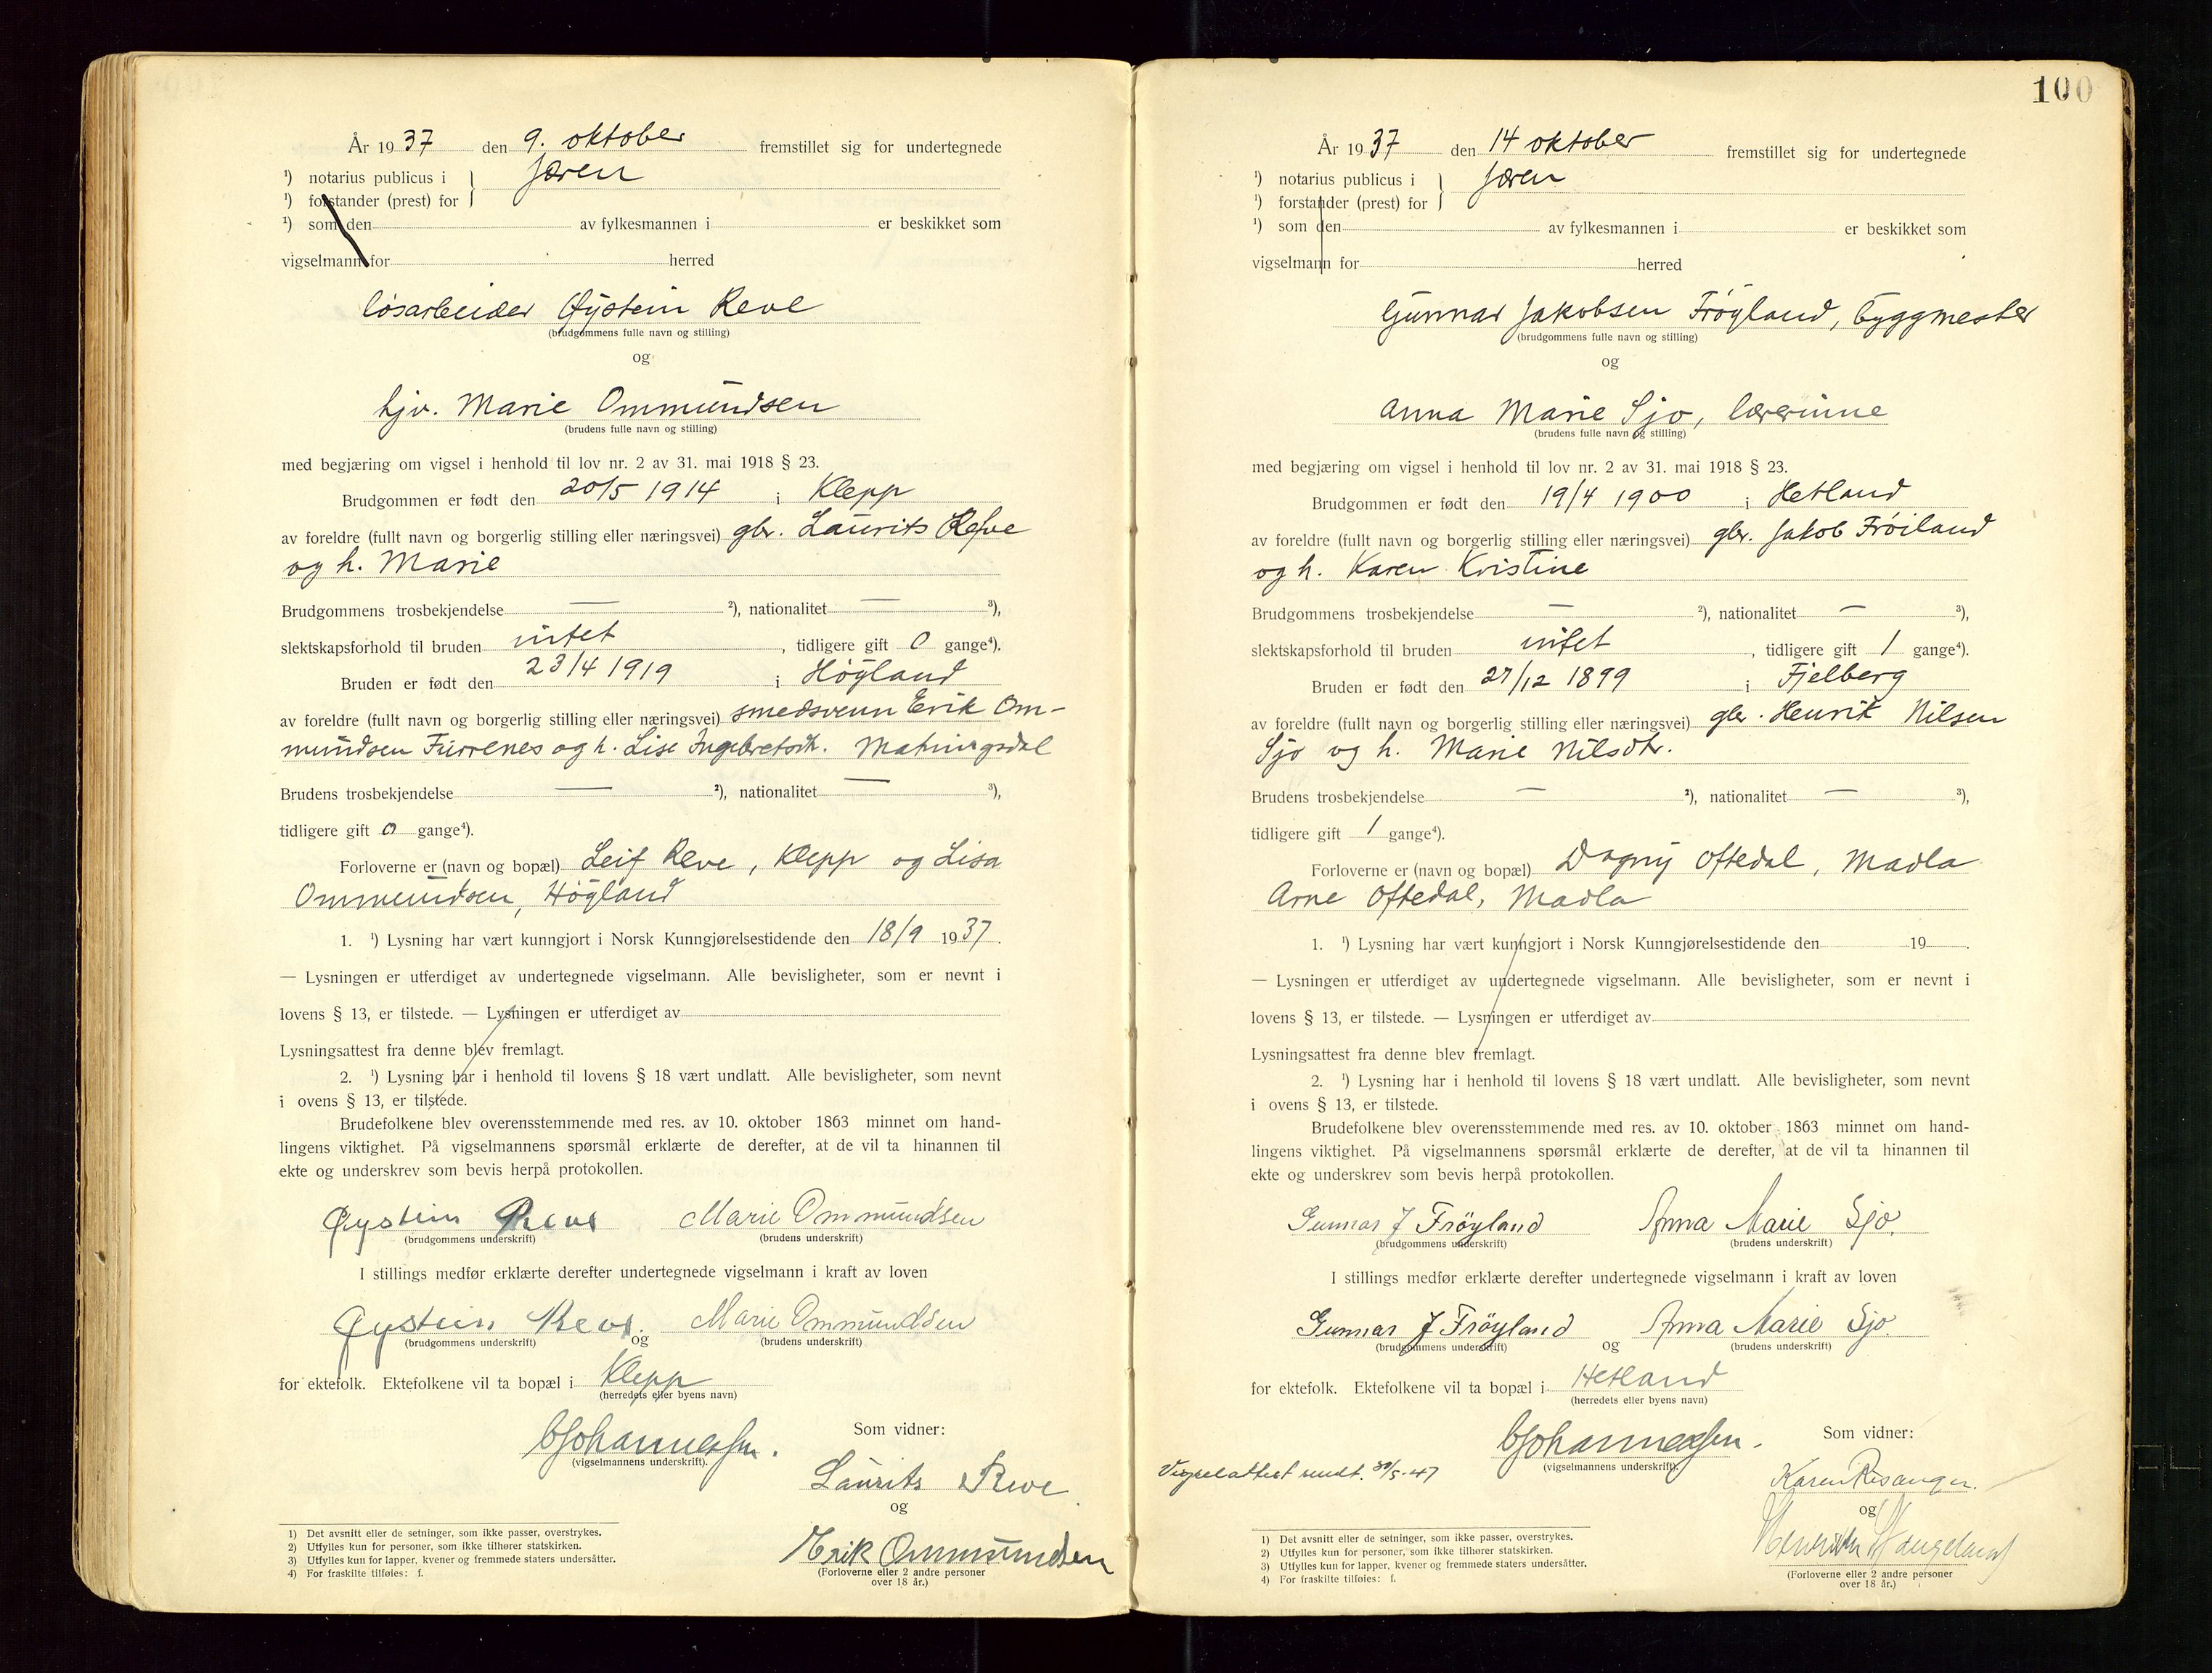 År 1937 den 9. oktober fremstillet sig for undertegnede
¹) notarius publicus i } Jæren
¹) forstander (prest) for
¹) som den av fylkesmannen i er beskikket som
vigselmann for herred
løsarbeider Øystein Reve
(brudgommens fulle navn og stilling)
og
hjv. Marie Ommundsen
(brudens fulle navn og stilling)
med begjæring om vigsel i henhold til lov nr. 2 av 31. mai 1918 § 23.
Brudgommen er født den 20/5 1914 i Klepp
av foreldre (fullt navn og borgerlig stilling eller næringsvei) gbr. Laurits Reve
og h. Marie
Brudgommens trosbekjendelse — ²), nationalitet — ³),
slektskapsforhold til bruden intet, tidligere gift 0 gange⁴).
Bruden er født den 23/4 1919 i Høyland
av foreldre (fullt navn og borgerlig stilling eller næringsvei) smedsvenn Erik Om-
mundsen Furrenes og h. Lise Ingebretsdt. Matningsdal
Brudens trosbekjendelse — ²), nationalitet — ³),
tidligere gift 0 gange⁴).
Forloverne er (navn og bopæl) Leif Reve, Klepp og Lisa
Ommundsen, Høyland
1. ¹) Lysning har vært kunngjort i Norsk Kunngjørelsestidende den 18/9 1937.
— Lysningen er utferdiget av undertegnede vigselmann. Alle bevisligheter, som er nevnt i
lovens § 13, er tilstede. — Lysningen er utferdiget av
Lysningsattest fra denne blev fremlagt.
2. ¹) Lysning har i henhold til lovens § 18 vært undlatt. Alle bevisligheter, som nevnt
i ovens § 13, er tilstede.
Brudefolkene blev overensstemmende med res. av 10. oktober 1863 minnet om hand-
lingens viktighet. På vigselmannens spørsmål erklærte de derefter, at de vil ta hinannen til
ekte og underskrev som bevis herpå protokollen.
Øystein Reve Marie Ommundsen
(brudgommens underskrift) (brudens underskrift)
I stillings medfør erklærte derefter undertegnede vigselmann i kraft av loven
Øystein Reve. og Marie Ommundsen
(brudgommens underskrift) (brudens underskrift)
for ektefolk. Ektefolkene vil ta bopæl i Klepp
(herredets eller byens navn)
Johannessen.
(vigselmannens underskrift).
Som vidner:
Laurits Reve
og
Erik Ommundsen
(Forloverne eller 2 andre personer
over 18 år.)
1) Det avsnitt eller de setninger, som ikke passer, overstrykes.
2) Utfylles kun for personer, som ikke tilhører statskirken.
3) Utfylles kun for lapper, kvener og fremmede staters undersåtter.
4) For fraskilte tilføies: f.
100
År 1937 den 14 oktober fremstillet sig for undertegnede
¹) notarius publicus i } Jæren
¹) forstander (prest) for
¹) som den av fylkesmannen i er beskikket som
vigselmann for herred
Gunnar Jakobsen Frøyland, byggmester
(brudgommens fulle navn og stilling)
og
Anna Marie Sjo, lærerinne
(brudens fulle navn og stilling)
med begjæring om vigsel i henhold til lov nr. 2 av 31. mai 1918 § 23.
Brudgommen er født den 19/4 1900 i Hetland
av foreldre (fullt navn og borgerlig stilling eller næringsvei) gbr. Jakob Frøiland
og h. Karen Kristine
Brudgommens trosbekjendelse — ²), nationalitet — ³),
slektskapsforhold til bruden intet, tidligere gift 1 gange⁴).
Bruden er født den 27/12 1899 i Fjelberg
av foreldre (fullt navn og borgerlig stilling eller næringsvei) gbr. Henrik Nilsen
Sjo og h. Marie Nilsdtr.
Brudens trosbekjendelse — ²), nationalitet — ³),
tidligere gift 1 gange⁴).
Forloverne er (navn og bopæl) Dagny Oftedal, Madla
Arne Oftedal, Madla
1. ¹) Lysning har vært kunngjort i Norsk Kunngjørelsestidende den 19 .
— Lysningen er utferdiget av undertegnede vigselmann. Alle bevisligheter, som er nevnt i
lovens § 13, er tilstede. — Lysningen er utferdiget av
Lysningsattest fra denne blev fremlagt.
2. ¹) Lysning har i henhold til lovens § 18 vært undlatt. Alle bevisligheter, som nevnt
i ovens § 13, er tilstede.
Brudefolkene blev overensstemmende med res. av 10. oktober 1863 minnet om hand-
lingens viktighet. På vigselmannens spørsmål erklærte de derefter, at de vil ta hinannen til
ekte og underskrev som bevis herpå protokollen.
Gunnar J Frøyland Anna Marie Sjo.
(brudgommens underskrift) (brudens underskrift)
I stillings medfør erklærte derefter undertegnede vigselmann i kraft av loven
Gunnar J Frøyland og Anna Marie Sjo.
(brudgommens underskrift) (brudens underskrift)
for ektefolk. Ektefolkene vil ta bopæl i Hetland
(herredets eller byens navn)
Johannessen.
(vigselmannens underskrift).
Vigselattest sendt. 30/5-47
Som vidner:
Karen Risanger.
og
(Forloverne eller 2 andre personer
over 18 år.)
1) Det avsnitt eller de setninger, som ikke passer, overstrykes.
2) Utfylles kun for personer, som ikke tilhører statskirken.
3) Utfylles kun for lapper, kvener og fremmede staters undersåtter.
4) For fraskilte tilføies: f.